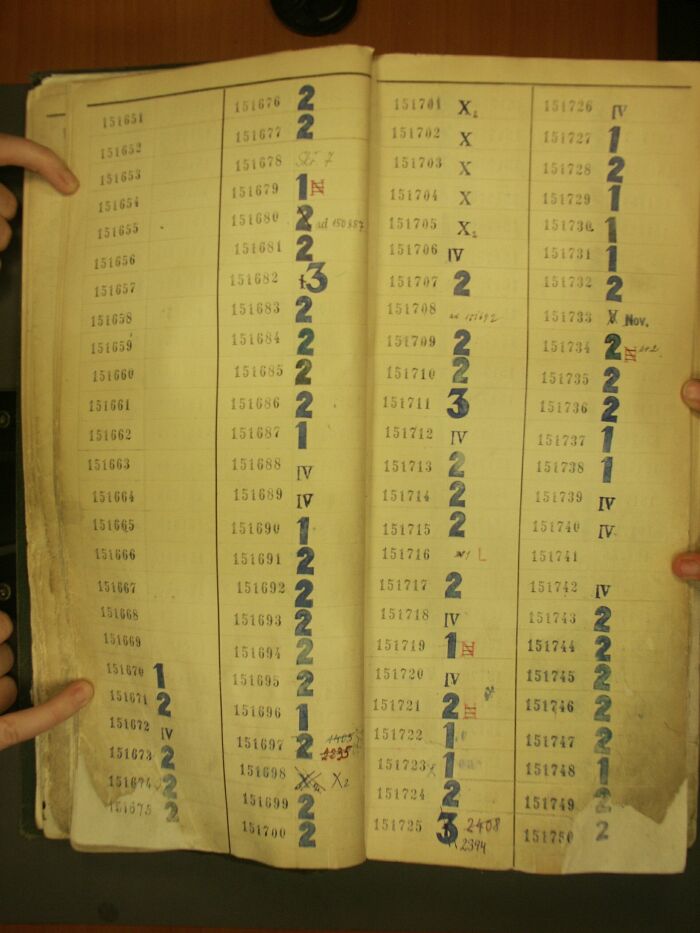 151651
151652
151653
151654
151655
151656
151657
151658
151659
151660
151661
151662
151663
151664
151665
151666
151667
151668
151669
151670 1
151671 2
151672 IV
151673 2
151674 2
151675 2
151676 2
151677 2
151678
151679 1 IV
151680 2 ad 150857
151681 2
151682 3
151683 2
151684 2
151685 2
151686 2
151687 1
151688 IV
151689 IV
151690 1
151691 2
151692 2
151693 2
151694 2
151695 2
151696 1
151697 2 2295
151698 X2
151699 2
151700 2
151701 X2
151702 X
151703 X
151704 X
151705 X2
151706 IV
151707 2
151708 ad 151692
151709 2
151710 2
151711 3
151712 IV
151713 2
151714 2
151715 2
151716 L
151717 2
151718 IV
151719 1 IV
151720 IV
151721 2 III
151722 1
151723 1
151724 2
151725 3 2408
2394
151726 IV
151727 1
151728 2
151729 1
151730 1
151731 1
151732 2
151733 V Nov.
151734 2 III
151735 2
151736 2
151737 1
151738 1
151739 IV
151740 IV
151741
151742 IV
151743 2
151744 2
151745 2
151746 2
151747 2
151748 1
151749 2
151750 2